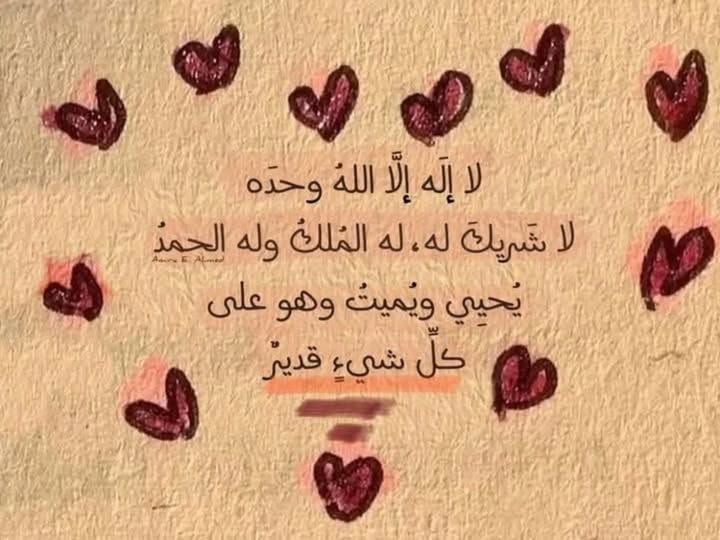 لا إلَه إلَّا اللهُ وحدَه
لا شَريكَ له، له المُلكُ وله الحمدُ
Amro E. Ahmed
يُحيِي ويُميتُ وهو على
كلِّ شيءٍ قديرٌ